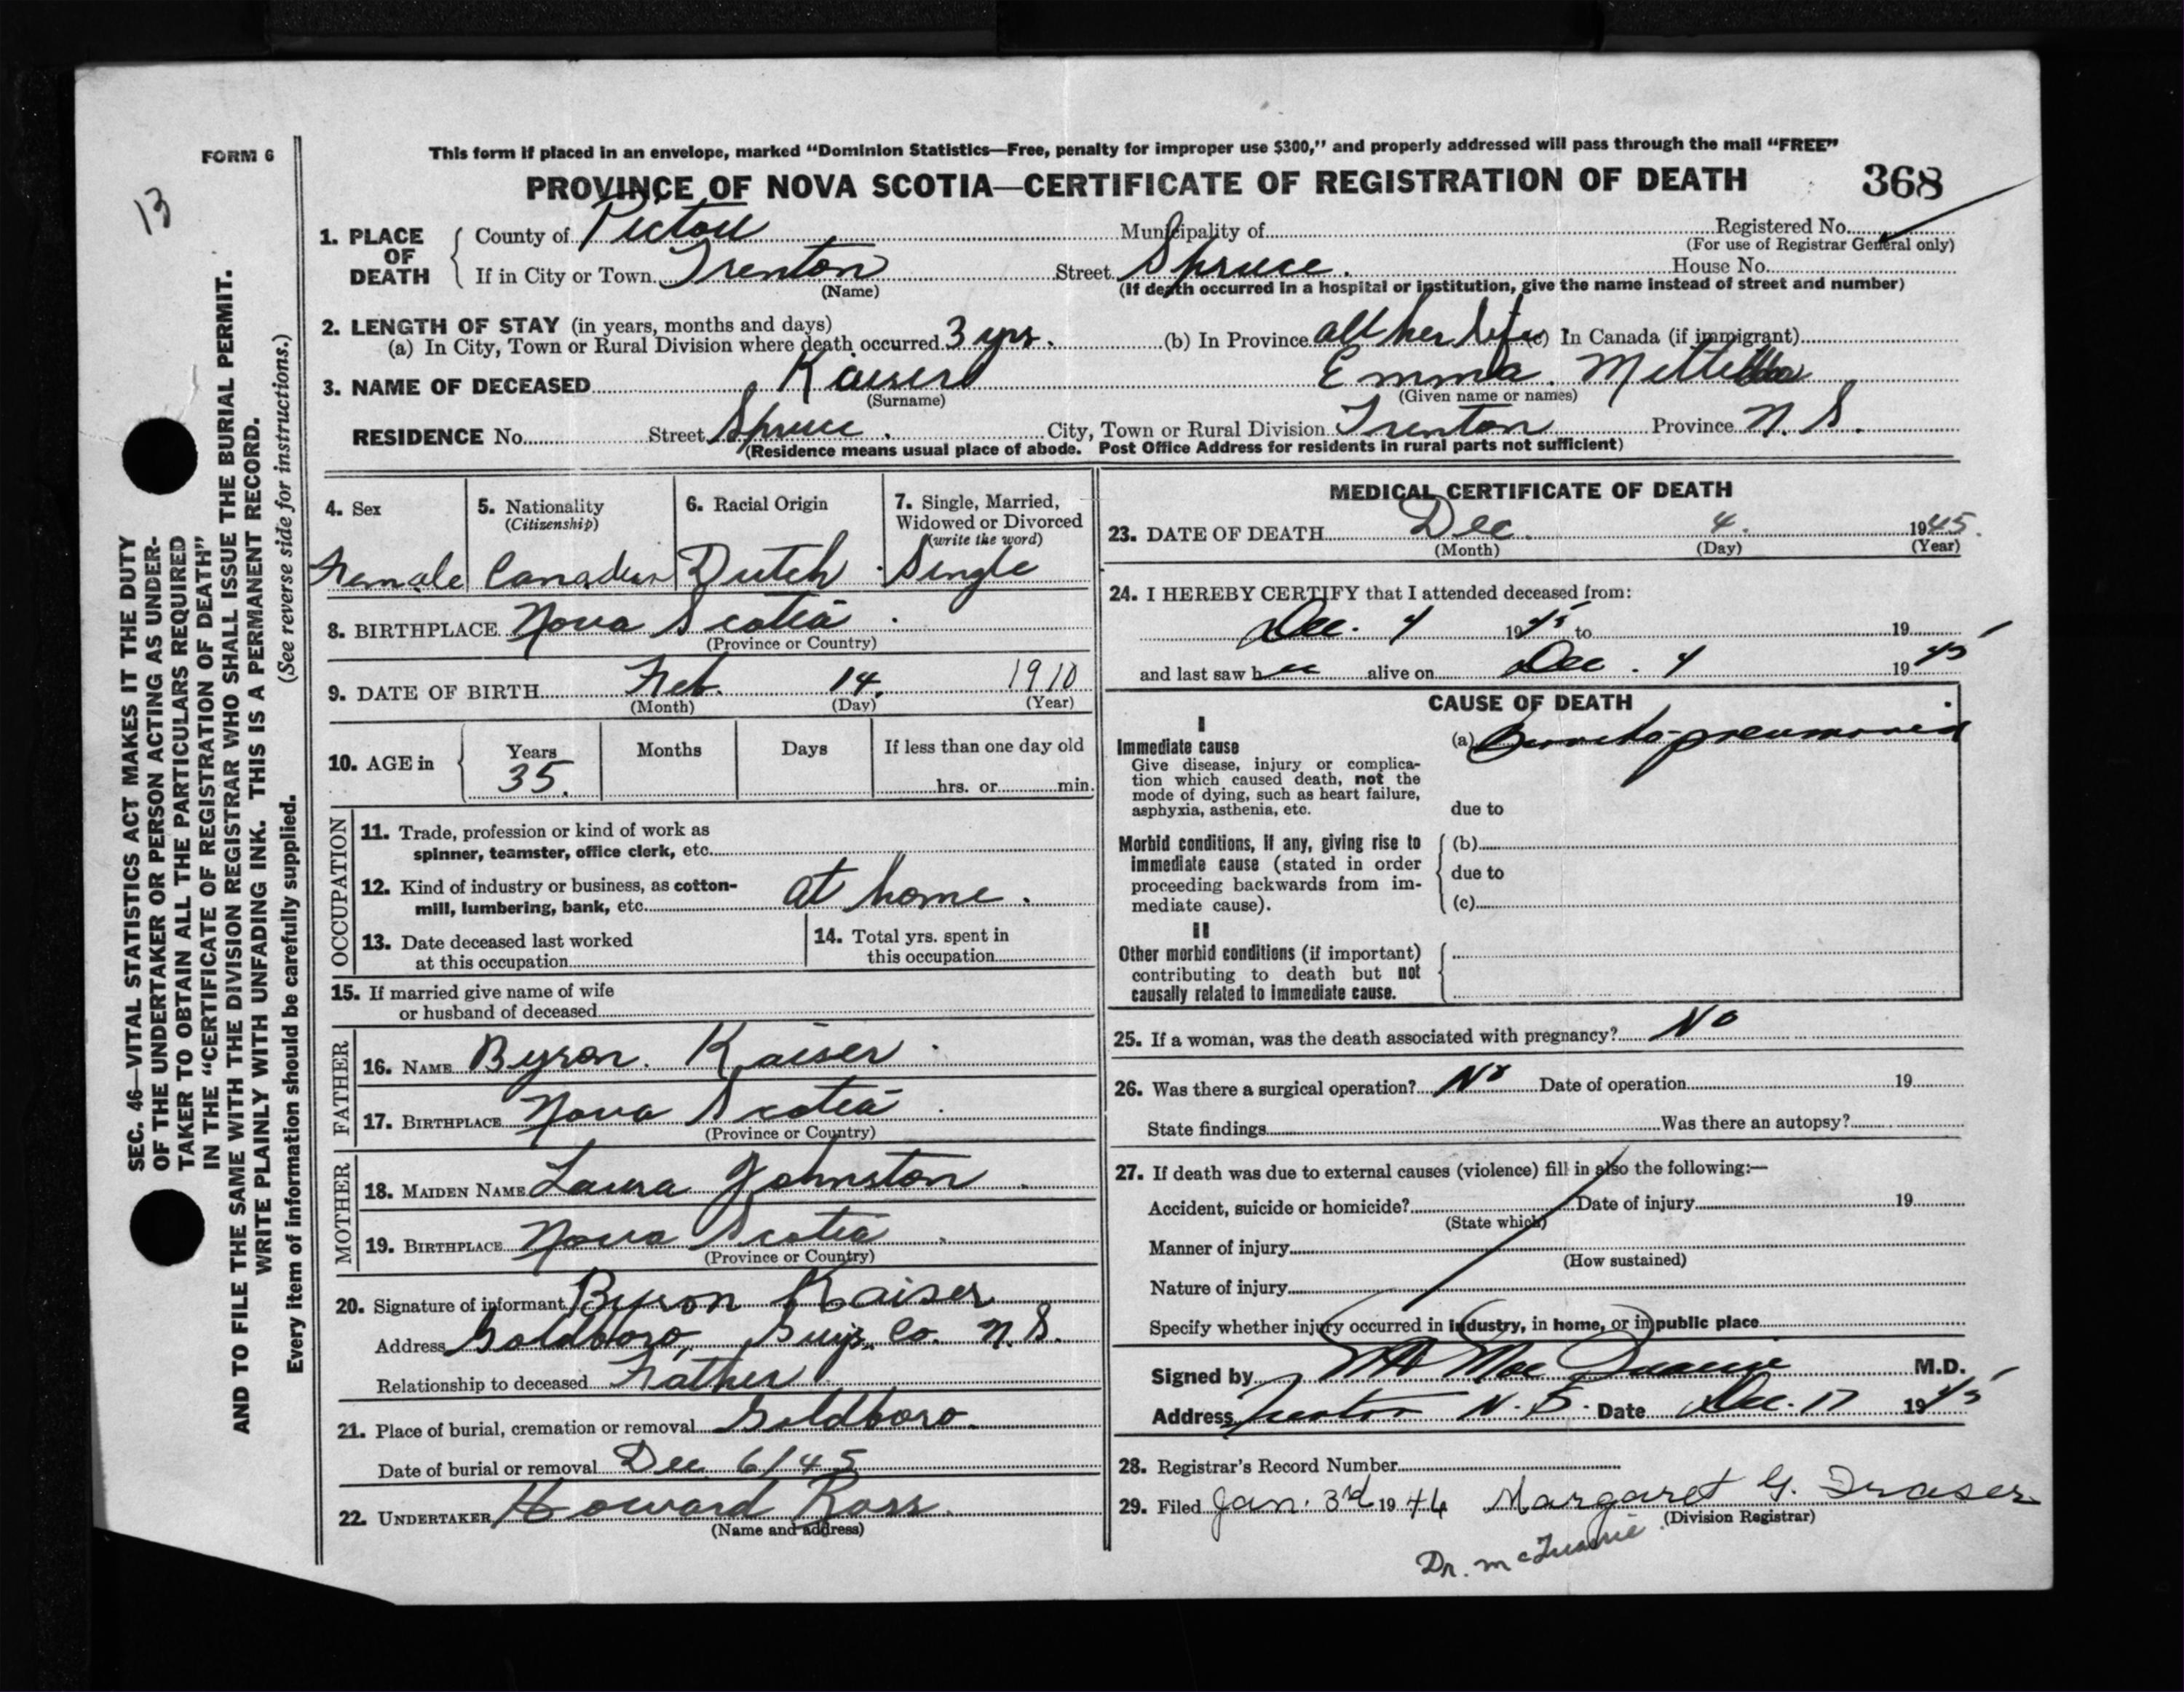 FORM 6
13
This form if placed in an envelope, marked “Dominion Statistics—Free, penalty for improper use $300,” and properly addressed will pass through the mail “FREE”
PROVINCE OF NOVA SCOTIA—CERTIFICATE OF REGISTRATION OF DEATH 368
1. PLACE OF DEATH
County of Pictou Municipality of Registered No.
(For use of Registrar General only)
If in City or Town Trenton Street Spruce. House No.
(Name) (If death occurred in a hospital or institution, give the name instead of street and number)
2. LENGTH OF STAY (in years, months and days)
(a) In City, Town or Rural Division where death occurred 3 yrs. (b) In Province all her life (c) In Canada (if immigrant)
3. NAME OF DECEASED Kaiser Emma
(Surname) (Given name or names)
RESIDENCE No. Street Spruce. City, Town or Rural Division Trenton Province N. S.
(Residence means usual place of abode. Post Office Address for residents in rural parts not sufficient)
4. Sex
Female
5. Nationality
(Citizenship)
Canadian
6. Racial Origin
Dutch
7. Single, Married,
Widowed or Divorced
(write the word)
Single
8. BIRTHPLACE Nova Scotia
(Province or Country)
9. DATE OF BIRTH Feb. 14. 1910
(Month) (Day) (Year)
10. AGE in Years Months Days If less than one day old
35. hrs. or min.
OCCUPATION
11. Trade, profession or kind of work as
spinner, teamster, office clerk, etc.
12. Kind of industry or business, as cotton-
mill, lumbering, bank, etc. at home.
13. Date deceased last worked
at this occupation
14. Total yrs. spent in
this occupation
15. If married give name of wife
or husband of deceased
FATHER
16. NAME Byron. Kaiser
17. BIRTHPLACE Nova Scotia
(Province or Country)
MOTHER
18. MAIDEN NAME Laura Johnston
19. BIRTHPLACE Nova Scotia
(Province or Country)
20. Signature of informant Byron Kaiser
Address Goldboro, Guys. Co. N. S.
Relationship to deceased Father
21. Place of burial, cremation or removal Goldboro.
Date of burial or removal Dec 6/45
22. UNDERTAKER Howard Ross.
(Name and address)
MEDICAL CERTIFICATE OF DEATH
23. DATE OF DEATH Dec. 4. 1945.
(Month) (Day) (Year)
24. I HEREBY CERTIFY that I attended deceased from:
Dec. 4 1945 to 19
and last saw her alive on Dec. 4 1945
CAUSE OF DEATH
I
Immediate cause
Give disease, injury or complica-
tion which caused death, not the
mode of dying, such as heart failure,
asphyxia, asthenia, etc.
(a) Broncho-pneumonia
due to
Morbid conditions, if any, giving rise to
immediate cause (stated in order
proceeding backwards from im-
mediate cause).
(b)
due to
(c)
II
Other morbid conditions (if important)
contributing to death but not
causally related to immediate cause.
25. If a woman, was the death associated with pregnancy? No
26. Was there a surgical operation? No Date of operation 19
State findings Was there an autopsy?
27. If death was due to external causes (violence) fill in also the following:—
Accident, suicide or homicide? Date of injury 19
(State which)
Manner of injury
(How sustained)
Nature of injury
Specify whether injury occurred in industry, in home, or in public place
Signed by M.D.
Address N. S. Date Dec. 17 1945
28. Registrar's Record Number
29. Filed Jan. 3rd 1946 Margaret G. Fraser
(Division Registrar)
Dr. McQuarrie
SEC. 46—VITAL STATISTICS ACT MAKES IT THE DUTY
OF THE UNDERTAKER OR PERSON ACTING AS UNDER-
TAKER TO OBTAIN ALL THE PARTICULARS REQUIRED
IN THE “CERTIFICATE OF REGISTRATION OF DEATH”
AND TO FILE THE SAME WITH THE DIVISION REGISTRAR WHO SHALL ISSUE THE BURIAL PERMIT.
WRITE PLAINLY WITH UNFADING INK. THIS IS A PERMANENT RECORD.
Every item of information should be carefully supplied. (See reverse side for instructions.)